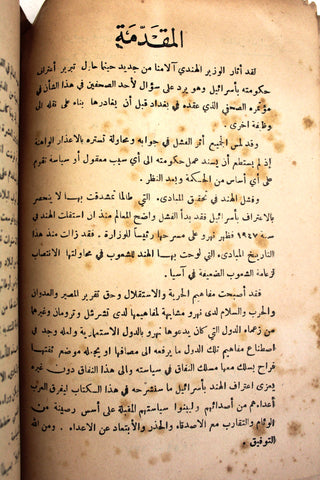 المقدّمة
لقد أثار الوزير الهندي آلامنا من جديد حينما حاول تبرير أعتراف
حكومته بأسرائيل وهو يرد على سؤال لأحد الصحفين في هذا الشأن في
مؤتمره الصحفي الذي عقده في بغداد قبل أن يغادرها بناء على نقله الى
وظيفة اخرى .
وقد لمس الجميع أثر الفشل في جوابه ومحاولة تستره بالاعذار الواهنة
إذ لم يستطع أن يسند عمل حكومته الى أي سبب معقول أو سياسة تقوم
على أي أساس من الحكمة وبعد النظر .
وفشل الهند في تحقيق المبادىء التي طالما تمشدقت بها لا ينحصر
بالاعتراف بأسرائيل فقد بدأ الفشل واضح المعالم منذ ان استقلت الهند في
سنة ١٩٤٧ فظهر نهرو على مسرحها رئيساً للوزارة . فقد زالت منذ هذا
التاريخ المبادىء التي لوحت بها الهند للشعوب في محاولتها الانتصاب
لزعامة الشعوب الضعيفة في آسيا .
فقد أصبحت مفاهيم الحرية والاستقلال وحق تقرير المصير والعدوان
والحرب والسلام لدى نهرو مشابهة لمفاهيمها لدى تشرشل وترومان وغيرهما
من زعماء الدول التي كان يدعوها نهرو بالدول الاستعمارية ولعله وجد في
اصطناع مفاهيم تلك الدول ما يرفعه الى مصافها او يجعله موضع ثقتها
فراح يسلك معها مسلك النفاق في سياسته والى هذا النفاق دون غيره
يعزى اعتراف الهند بأسرائيل ما سنشرحه في هذا الكتاب ليفرق العرب
أعداءهم من أصدقائهم وليبنوا سياستهم المقبلة على أسس رصينة من
الوئام والتقارب مع الاصدقاء والحذر والأبتعاد عن الاعداء . ومن الله
التوفيق .